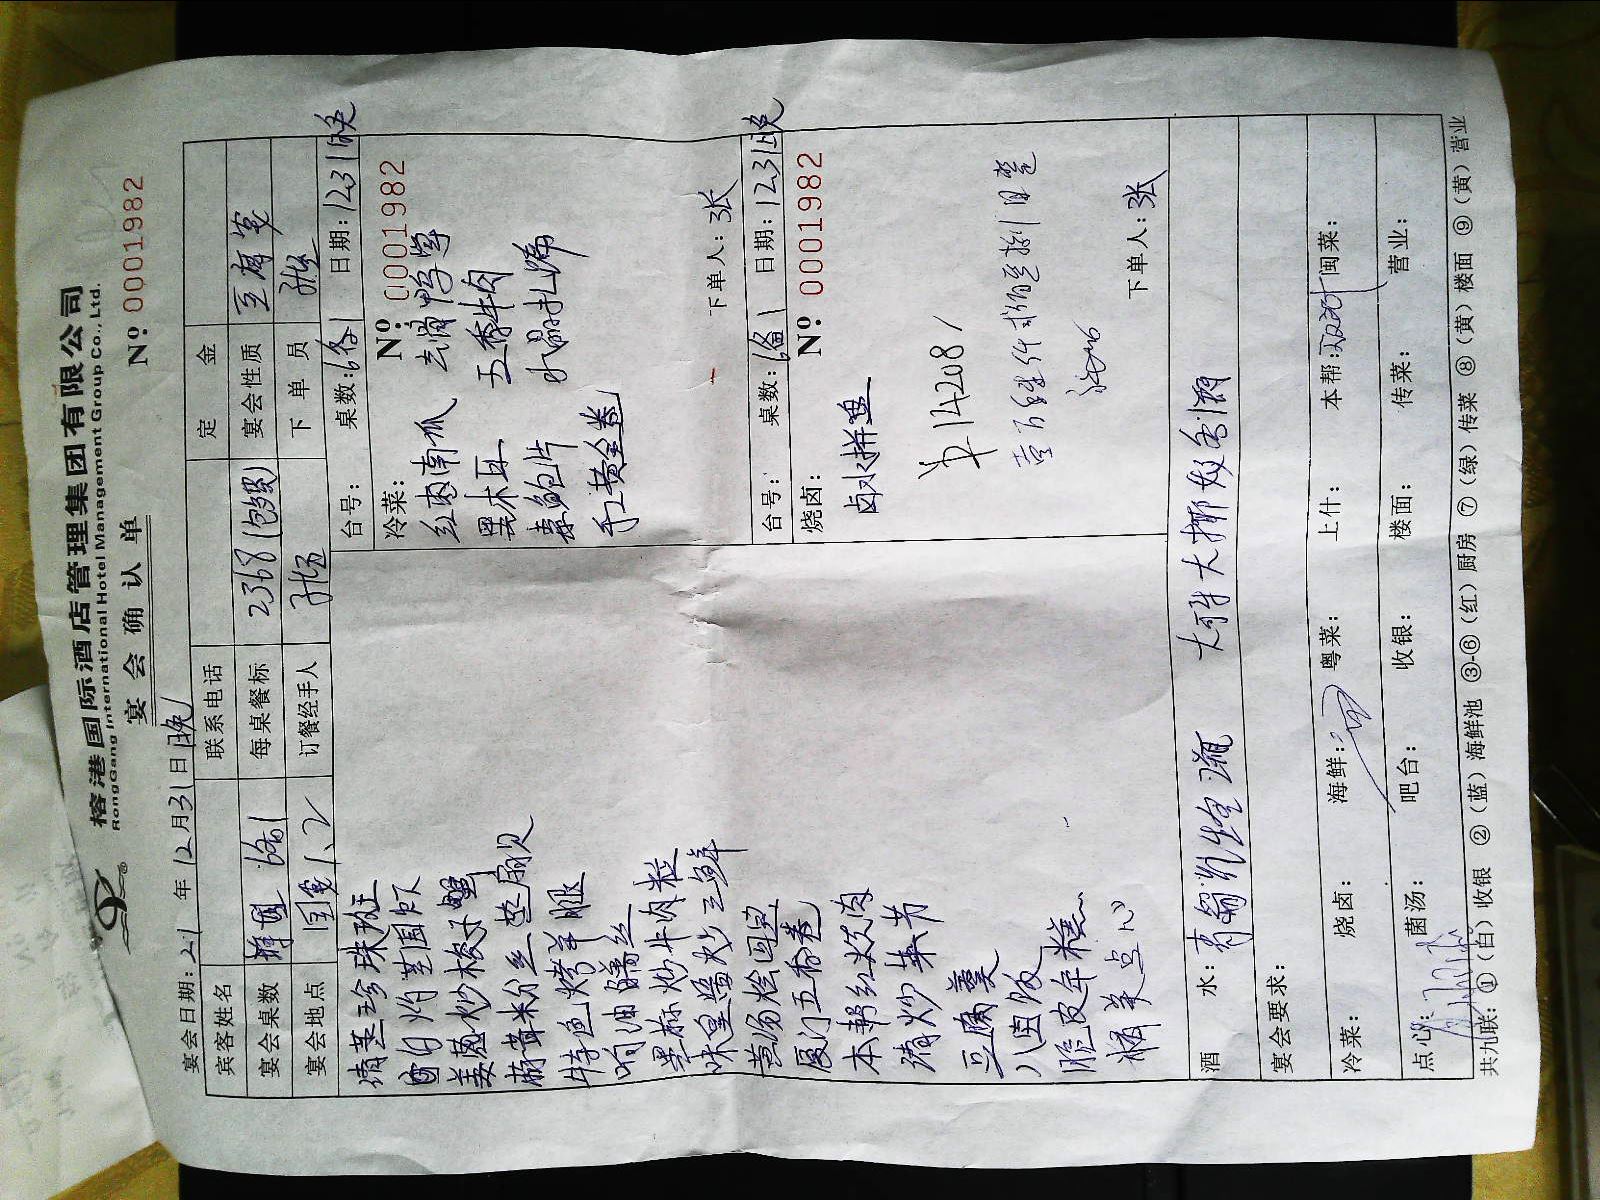 榕港国际酒店管理集团有限公司
RongGang International Hotel Management Group Co., Ltd.
宴会确认单
№ 0001982
宴会日期: 21 年 12 月 31 日 晚
宾客姓名 联系电话 定金
宴会桌数 6台 每桌餐标 2368 宴会性质
宴会地点 1、2 订餐经手人 下单员
清蒸珍珠斑
白灼基围虾
姜葱炒梭子蟹
蒜茸粉丝蒸扇贝
特色烤羊腿
响油鳝丝
黑椒炒牛肉粒
味皇酱炒三鲜
黄汤烩四宝
厦门五香卷
本帮红烧肉
清炒菜芯
豆腐羹
八宝饭
脆皮年糕
精美点心
台号: 桌数: 6台 日期: 1231晚
冷菜: № 0001982
红枣南瓜
黑木耳 五香牛肉
素鲍片 水晶扎蹄
手工黄金卷
下单人: 张
台号: 桌数: 6台 日期: 1231晚
烧卤: № 0001982
卤水拼盘
¥14208
下单人: 张
酒水:
宴会要求:
冷菜: 烧卤: 海鲜: 粤菜: 上什: 本帮: 闽菜:
点心: 菌汤: 吧台: 收银: 楼面: 传菜: 营业:
共九联: ①(白)收银 ②(蓝)海鲜池 ③-⑥(红)厨房 ⑦(绿)传菜 ⑧(黄)楼面 ⑨(黄)营业